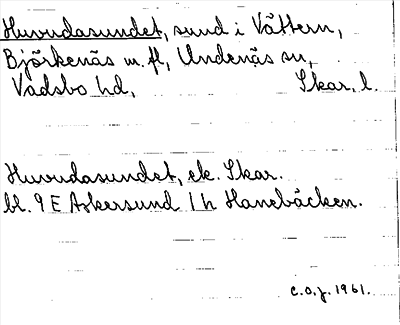 Huvudasundet, sund i Vättern,
Björkenäs m. fl, Undenäs sn,
Vadsbo hd, Skar. l.
Huvudasundet, ek. Skar.
bl. 9 E Askersund 1 h Hanebäcken.
C.O.J. 1961.